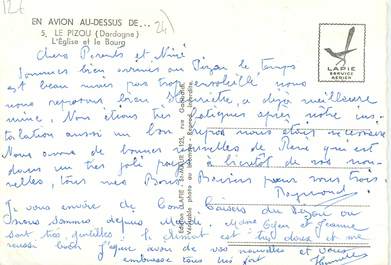 12€
EN AVION AU-DESSUS DE...
24
5. LE PIZOU (Dordogne)
L'Église et le Bourg
LAPIE
SERVICE
AÉRIEN
Chers Parents et Mimé
Sommes bien arrivés au Pizou le temps
est beau mais pas trop ensoleillé nous
nous reposons bien, a déjà meilleure
mine, Nous étions très fatigués après notre ins-
tallation aussi un bon repos nous était nécessaire
Nous avons de bonnes nouvelles de Pierre qui est
dans un très joli pays à bientôt de vos nou-
velles, tous mes Bons Baisers pour vous trois.
Raymond
Je vous envoie de Bons Baisers du Pizou ou
nous sommes depuis Mardi. et Jeanne
sont très gentilles. le climat est très doux et me
réussi bien J'espère avoir de vos nouvelles et vous
embrasse tous bien fort
Éditions "LAPIE" St-MAUR
Véritable photo au bromure - Reprod. interdite